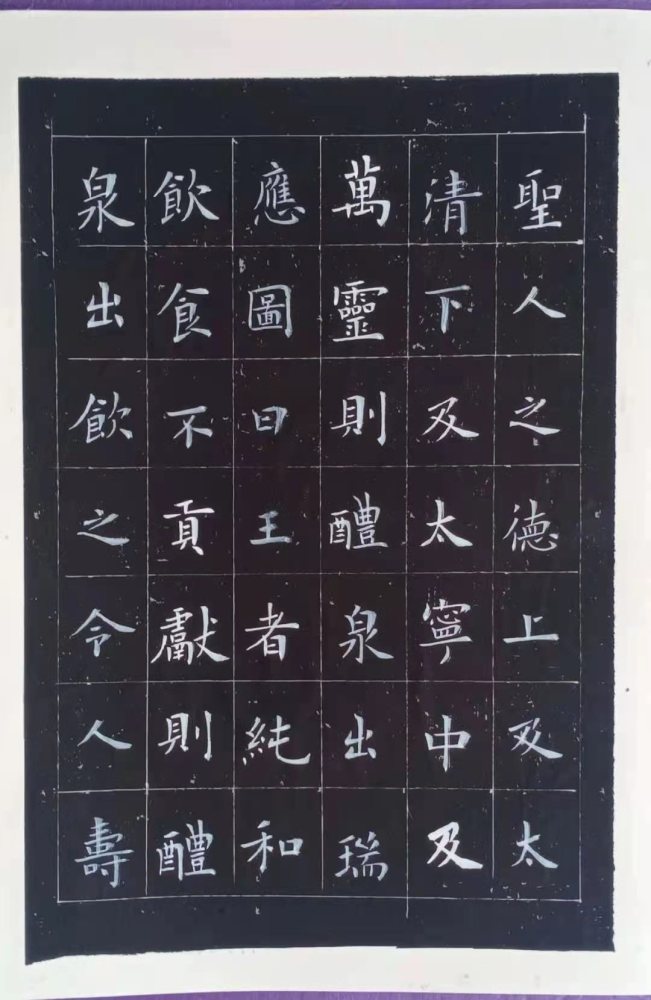 聖人之德上及太
清下及太寧中及
萬靈則醴泉出瑞
應圖曰王者純和
飲食不貢獻則醴
泉出飲之令人壽